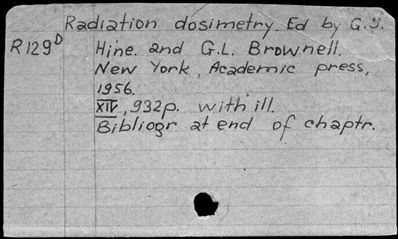 Radiation dosimetry. Ed by G.J.
R129D Hine. and G.L. Brownell.
New York, Academic press,
1956.
XIV, 932p. with ill.
Bibliogr at end of chaptr.